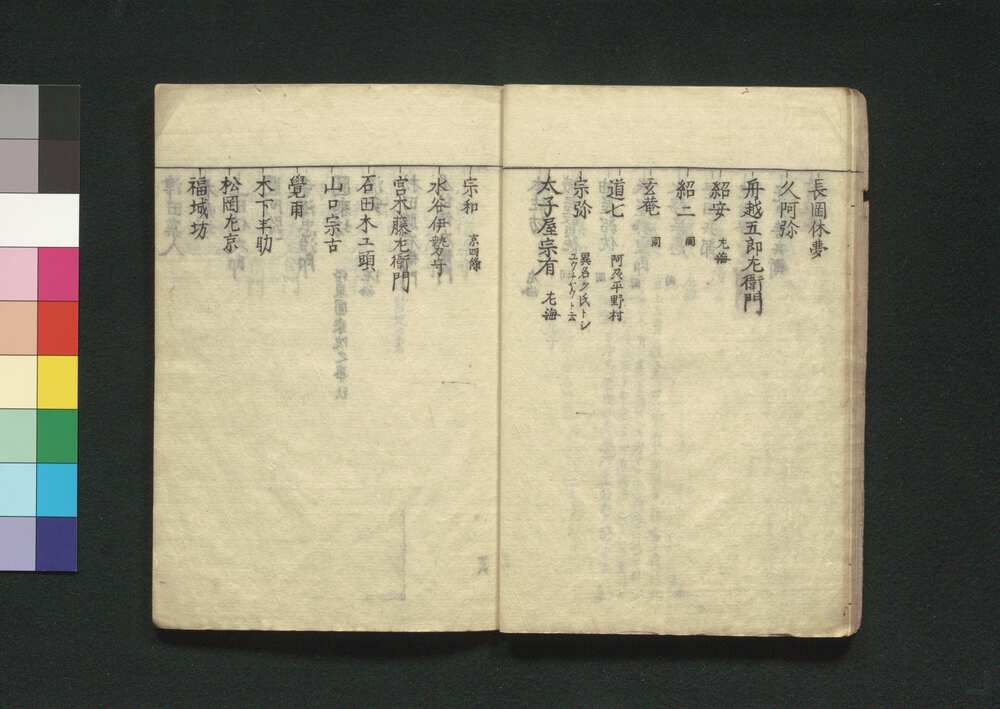 長岡休夢
久阿弥
舟越五郎左衛門
紹安 左海
紹二 同
玄菴 同
道七 阿忍平野村
宗弥
太子屋宗有 左海
宗和 京四條
水谷伊勢守
宮木藤左衛門
石田木工頭
山口宗古
覺甫
木下半助
松岡左京
福城坊